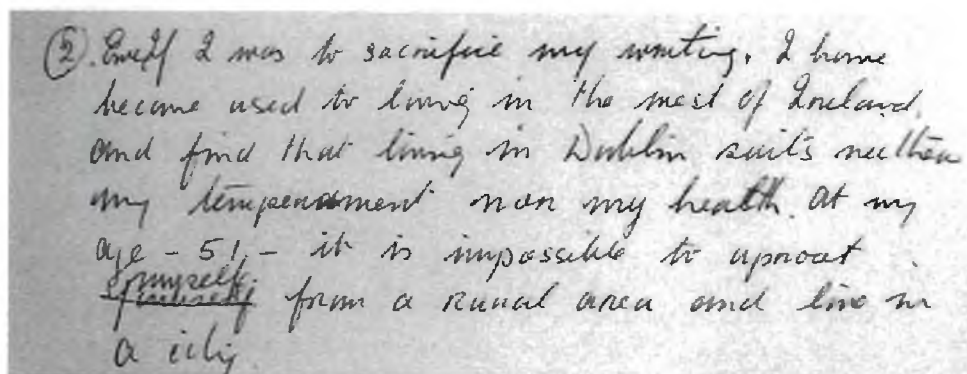 ②. Even if I was to sacrifice my writing. I have
become used to living in the west of Ireland,
and find that living in Dublin suits neither
my temperament nor my health. At my
age - 51 - it is impossible to uproot
myself,
from a rural area and live in
a city.